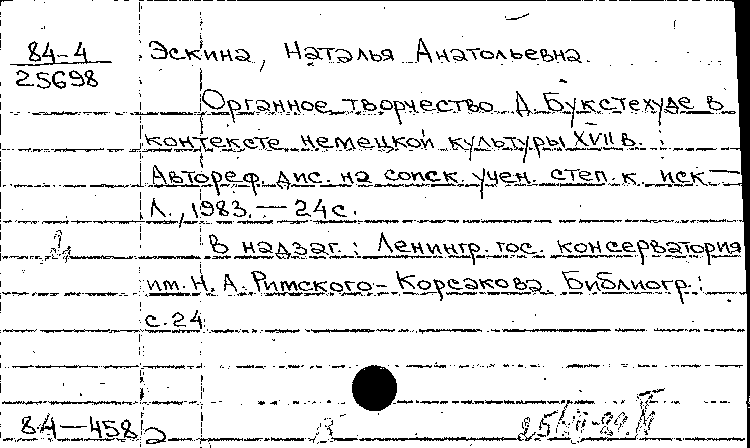 84-4
25698
Эскина, Наталья Анатольевна.
Органное творчество Д. Букстехуде в
контексте немецкой культуры XVII в. :
Автореф. дис. на соиск. учен. степ. к. иск —
Л., 1983. — 24 с.
В надзаг. : Ленингр. гос. консерватория
им. Н. А. Римского-Корсакова. Библиогр. :
с. 24
84—458